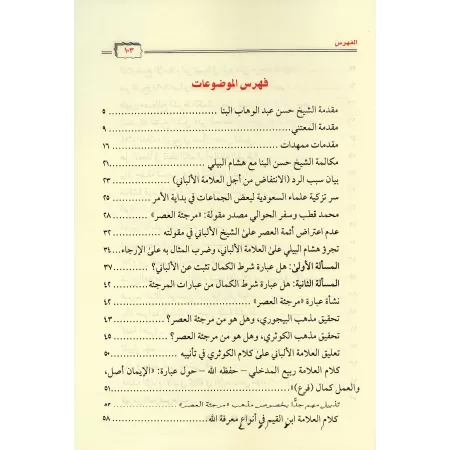 الفهرس
١٠٣
فهرس الموضوعات
مقدمة الشيخ حسن عبد الوهاب البنا ٥
مقدمة المعتني ٩
مقدمات ممهدات ١٦
مكالمة الشيخ حسن البنا مع هشام البيلي ٢١
بيان سبب الرد (الانتفاض من أجل العلامة الألباني) ٢٣
سر تزكية علماء السعودية لبعض الجماعات في بداية الأمر ٢٥
محمد قطب وسفر الحوالي مصدر مقولة: «مرجئة العصر» ٢٨
عدم اعتراض أئمة العصر على الشيخ الألباني في مقولته ٣٢
تجرؤ هشام البيلي على العلامة الألباني، وضرب المثال به على الإرجاء ٣٤
المسألة الأولى: هل عبارة شرط الكمال تثبت عن الألباني؟ ٣٧
المسألة الثانية: هل عبارة شرط الكمال من عبارات المرجئة ٤٢
نشأة عبارة «مرجئة العصر» ٤٢
تحقيق مذهب البيجوري، وهل هو من مرجئة العصر؟ ٤٣
تحقيق مذهب الكوثري، وهل هو من مرجئة العصر؟ ٤٥
تعليق العلامة الألباني على كلام الكوثري في تأنيبه ٥٠
كلام العلامة ربيع المدخلي - حفظه الله - حول عبارة: «الإيمان أصل،
والعمل كمال (فرع)» ٥١
تذييل مهم جدًّا بخصوص مذهب «مرجئة العصر» ٥٣
كلام العلامة ابن القيم في أنواع معرفة الله ٥٨